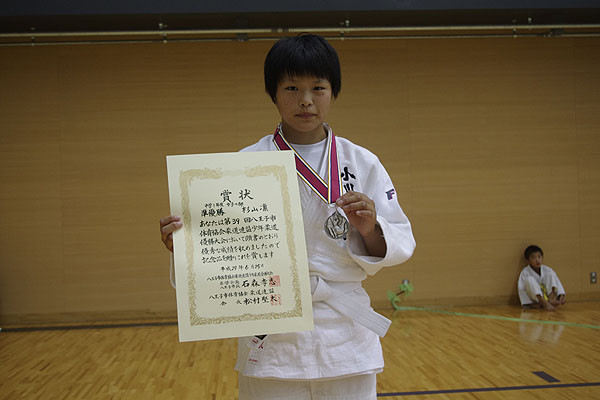 賞状
準優勝 杉山 凛
あなたは第39回八王子市
体育協会柔道連盟少年柔道
優勝大会において頭書のとおり
優秀な成績を収めましたので
記念品を贈りこれを賞します
平成29年6月25日
石森孝志
八王子市体育協会 柔道連盟
会長 松村堅矢
小川